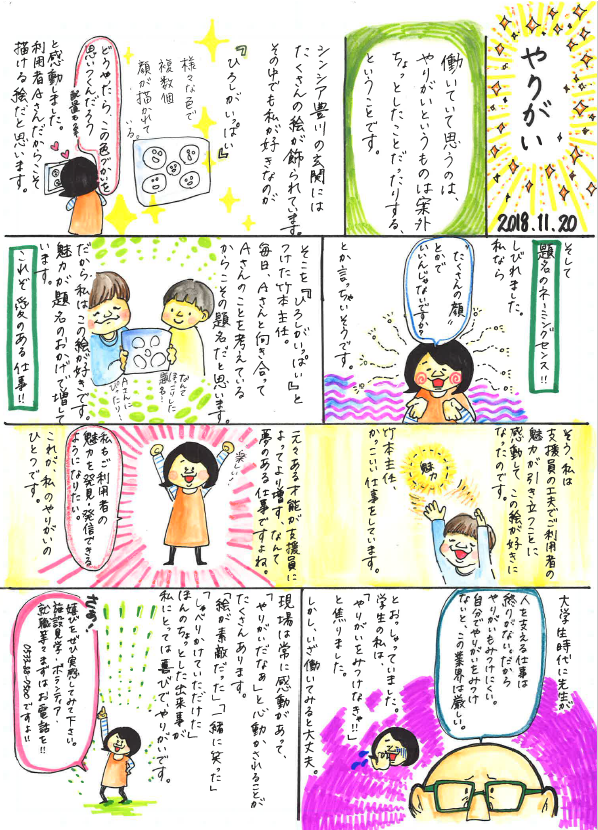 やりがい
2018.11.20
働いていて思うのは、
やりがいというものは案外
ちょっとしたことだったりする、
ということです。
シンシア豊川の玄関には
たくさんの絵が飾られています。
その中でも私が好きなのが
『ひろしがいっぱい』
様々な色で
複数個
顔が描かれて
いる。
どうやったら、この色づかいを
思いつくんだろう
配置もなぁ
と感動しました。
利用者Aさんだからこそ
描ける絵だと思います。
そして
題名のネーミングセンス!!
しびれました。
私なら
"たくさんの顔"
とかで
いいんじゃないですか?
とか言っちゃいそうです。
そこを『ひろしがいっぱい』と
つけた竹本主任。
毎日、Aさんのことを考えている
Aさんと向き合って
からこその題名だと思います。
なんて
ほっこりした
題名…
Aさんに
ぴったり…
だから、私はこの絵が好きです。
魅力が題名のおかげで増して
います。
これぞ愛のある仕事!!
そう、私は
支援員の工夫でご利用者の
魅力が引き立つことに
感動して、この絵が好きに
なったのです。
魅力
竹本主任、
かっこいい仕事をしています。
元々ある才能が支援員に
よってより増す、なんて
夢のある仕事ですよね。
楽しい!
私もご利用者の
魅力を発見・発信できる
ようになりたい。
これが、私のやりがいの
ひとつです。
大学生時代に先生が
人を支える仕事は
終りがない。だから
やりがいもみつけにくい。
自分でやりがいをみつけ
ないと、この業界は厳しい。
とおっしゃっていました。
学生の私は、
「やりがいをみつけなきゃ!!」
と焦りました。
しかし、いざ働いてみると大丈夫。
現場は常に感動があって、
「やりがいだなぁ」と心動かされることが
たくさんあります。
「絵が素敵だった」「一緒に笑った」
「しゃべりかけていただけた」
ほんのちょっとした出来事が
私にとっては喜びで、やりがいです。
さぁ!
嬉びをぜひ実感してみて下さい。
施設見学・ボランティア・
就職等々まずはお電話を!!
ですよ!!